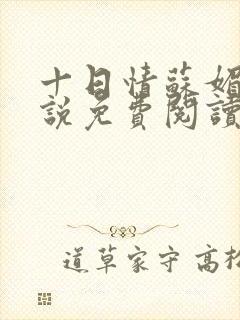 十日情蘇媚
說免費閱讀
道草家守 高松